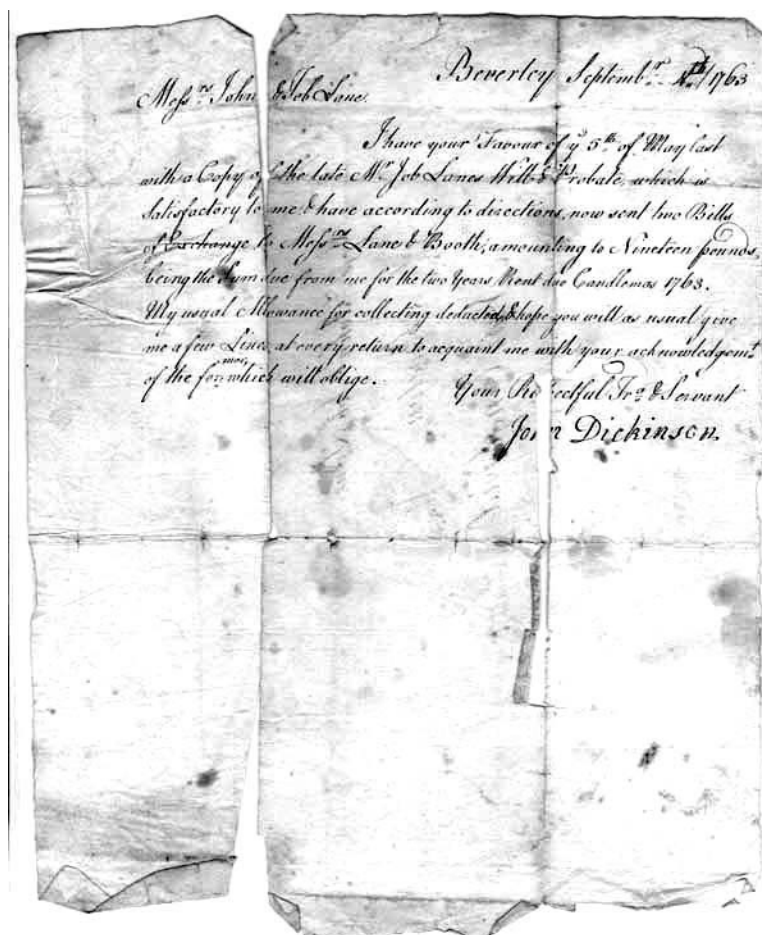 Beverley Septembr. 1763
Messrs. John & Job Lane.
I have your Favour of ye 5th of May last
with a Copy of the late Mr Job Lanes Will & Probate, which is
Satisfactory to me & have according to directions, now sent two Bills
of Exchange to Messrs Lane & Booth, amounting to Nineteen pounds,
being the Sum due from me for the two Years Rent due Candlemas 1763.
My usual Allowance for collecting deducted, & hope you will as usual give
me a few Lines, at every return to acquaint me with your acknowledgemt.
of the former which will oblige.
Your Respectful Frd. & Servant
John Dickinson.